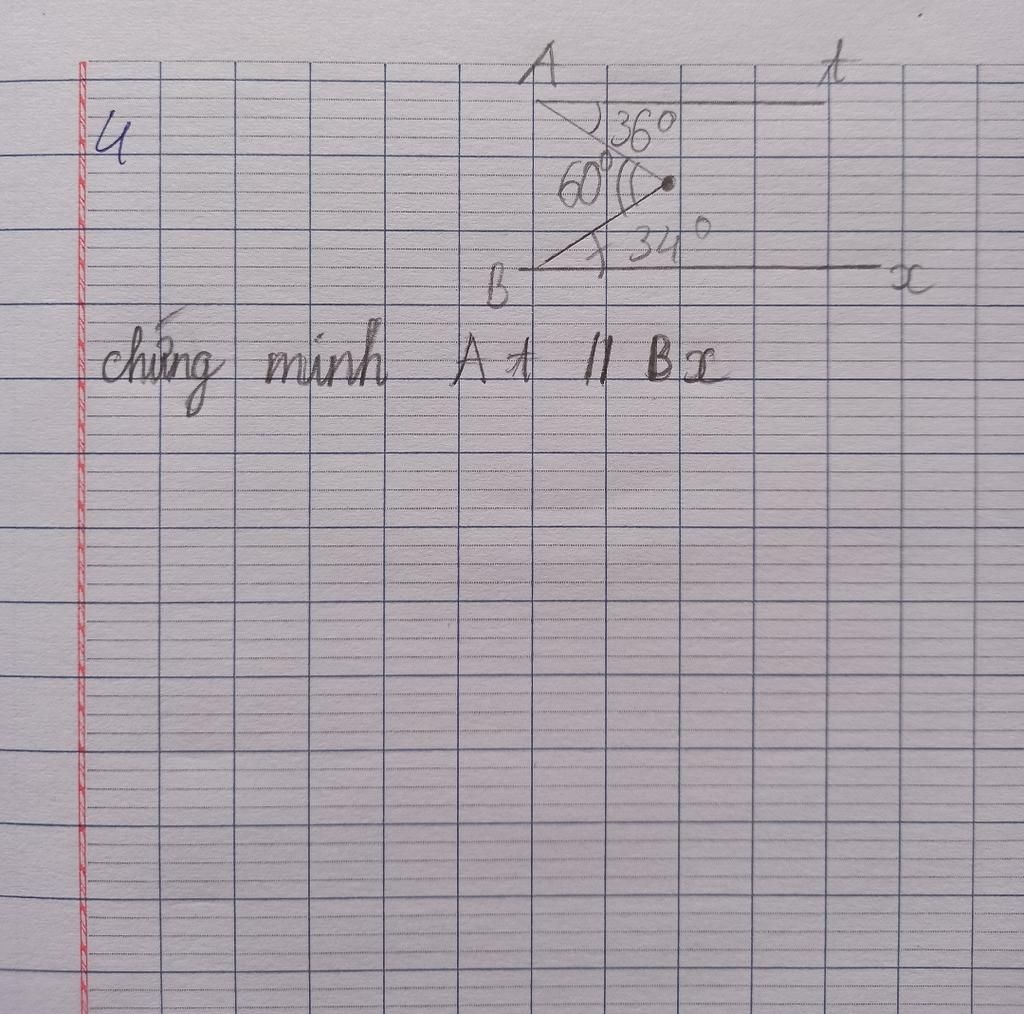 A t
4
36°
60°
34°
B x
chứng minh At // Bx